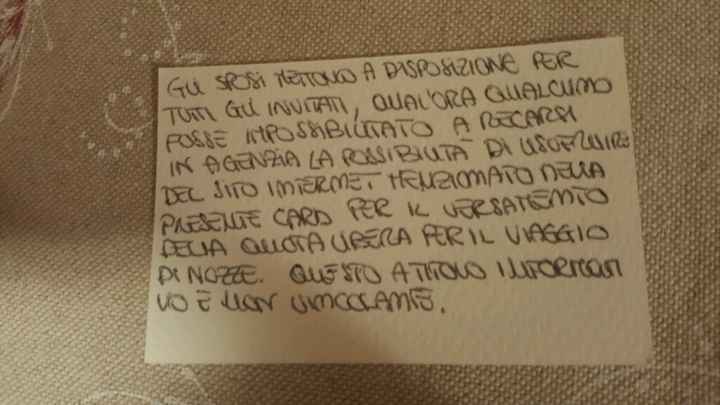 GLI SPOSI METTONO A DISPOSIZIONE PER
TUTTI GLI INVITATI, QUAL'ORA QUALCUNO
FOSSE IMPOSSIBILITATO A RECARSI
IN AGENZIA LA POSSIBILITÀ DI USUFRUIRE
DEL SITO INTERNET MENZIONATO NELLA
PRESENTE CARD PER IL VERSAMENTO
DELLA QUOTA LIBERA PER IL VIAGGIO
DI NOZZE. QUESTO A TITOLO INFORMATI
VO E NON VINCOLANTE.